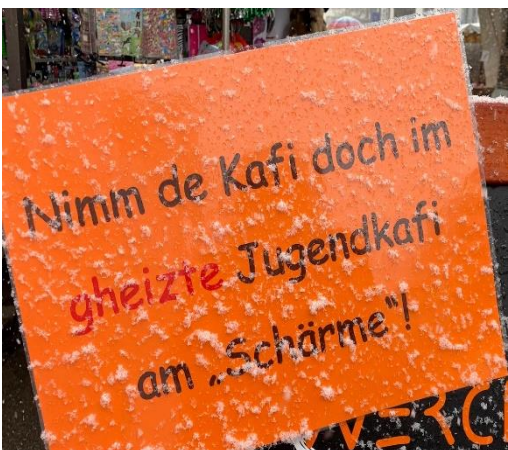 Nimm de Kafi doch im
gheizte Jugendkafi
am „Schärme“!